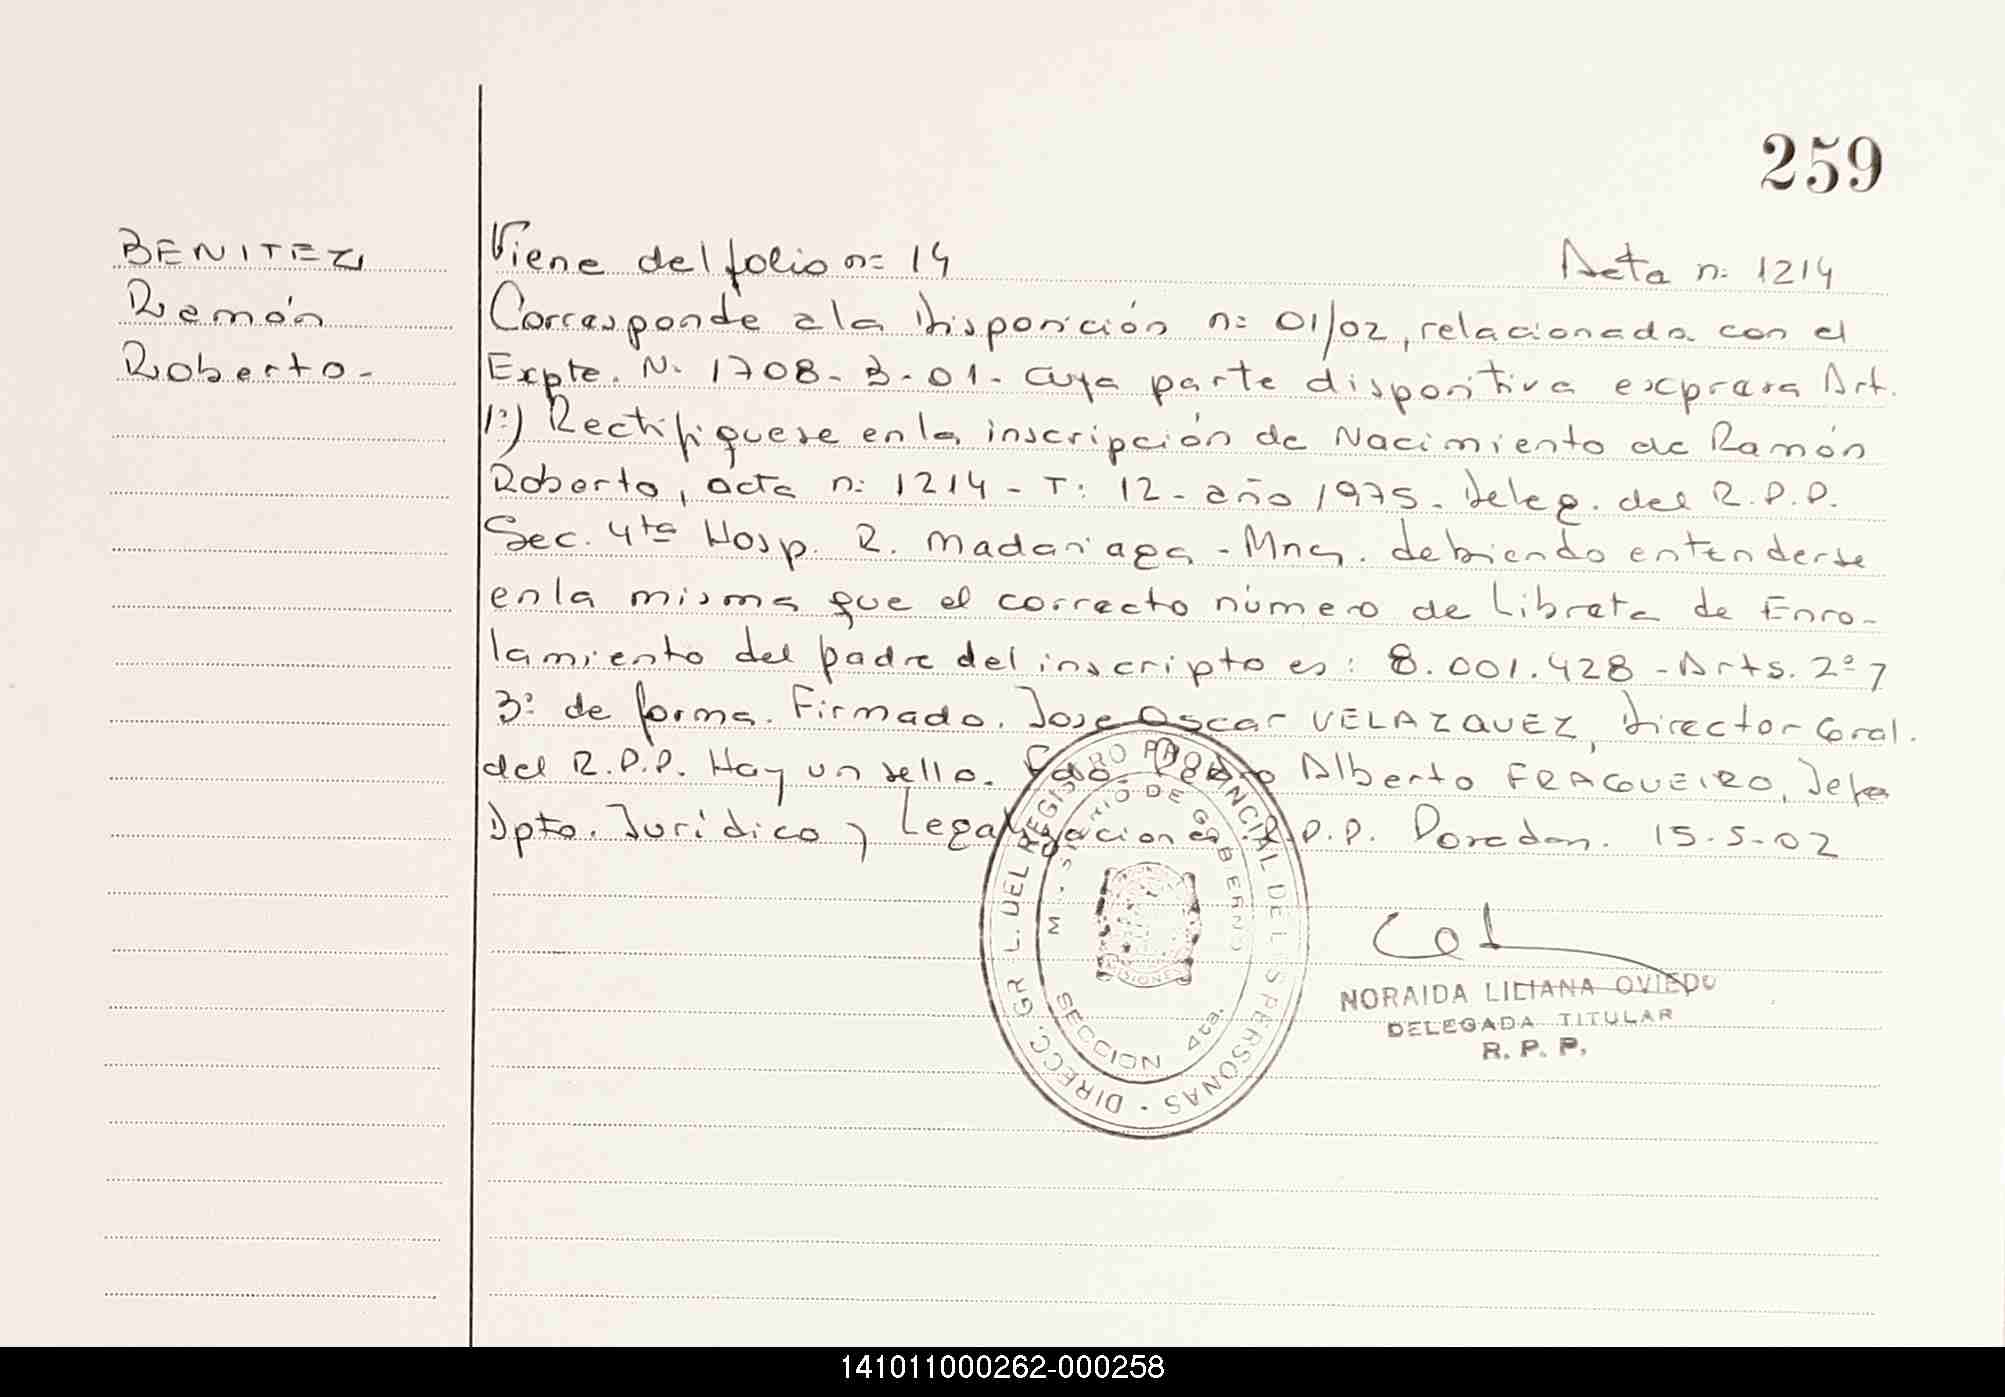 259
BENITEZ
Ramón
Roberto.-
Viene del folio nº 14 Acta nº 1214
Corresponde a la Disposición nº 01/02, relacionada con el
Expte. Nº 1708-B-01. cuya parte dispositiva expresa Art.
1º) Rectifíquese en la inscripción de Nacimiento de Ramón
Roberto, acta nº 1214 - Tº 12 - año 1975. Deleg. del R.P.P.
Sec. 4ta Hosp. R. Madariaga - Mnes. debiendo entenderse
en la misma que el correcto número de Libreta de Enro-
lamiento del padre del inscripto es: 8.001.428 - Arts. 2º y
3º de forma. Firmado. Jose Oscar VELAZQUEZ, Director Gral.
del R.P.P. Hay un sello. Fdo. Pedro Alberto FRAGUEIRO, Jefe
Dpto. Jurídico y Legalizaciones R.P.P. Posadas. 15-5-02
DIRECC. GRAL. DEL REGISTRO PROVINCIAL DE LAS PERSONAS
MINISTERIO DE GOBIERNO
MISIONES
SECCION 4ta.
NORAIDA LILIANA OVIEDO
DELEGADA TITULAR
R. P. P.
141011000262-000258